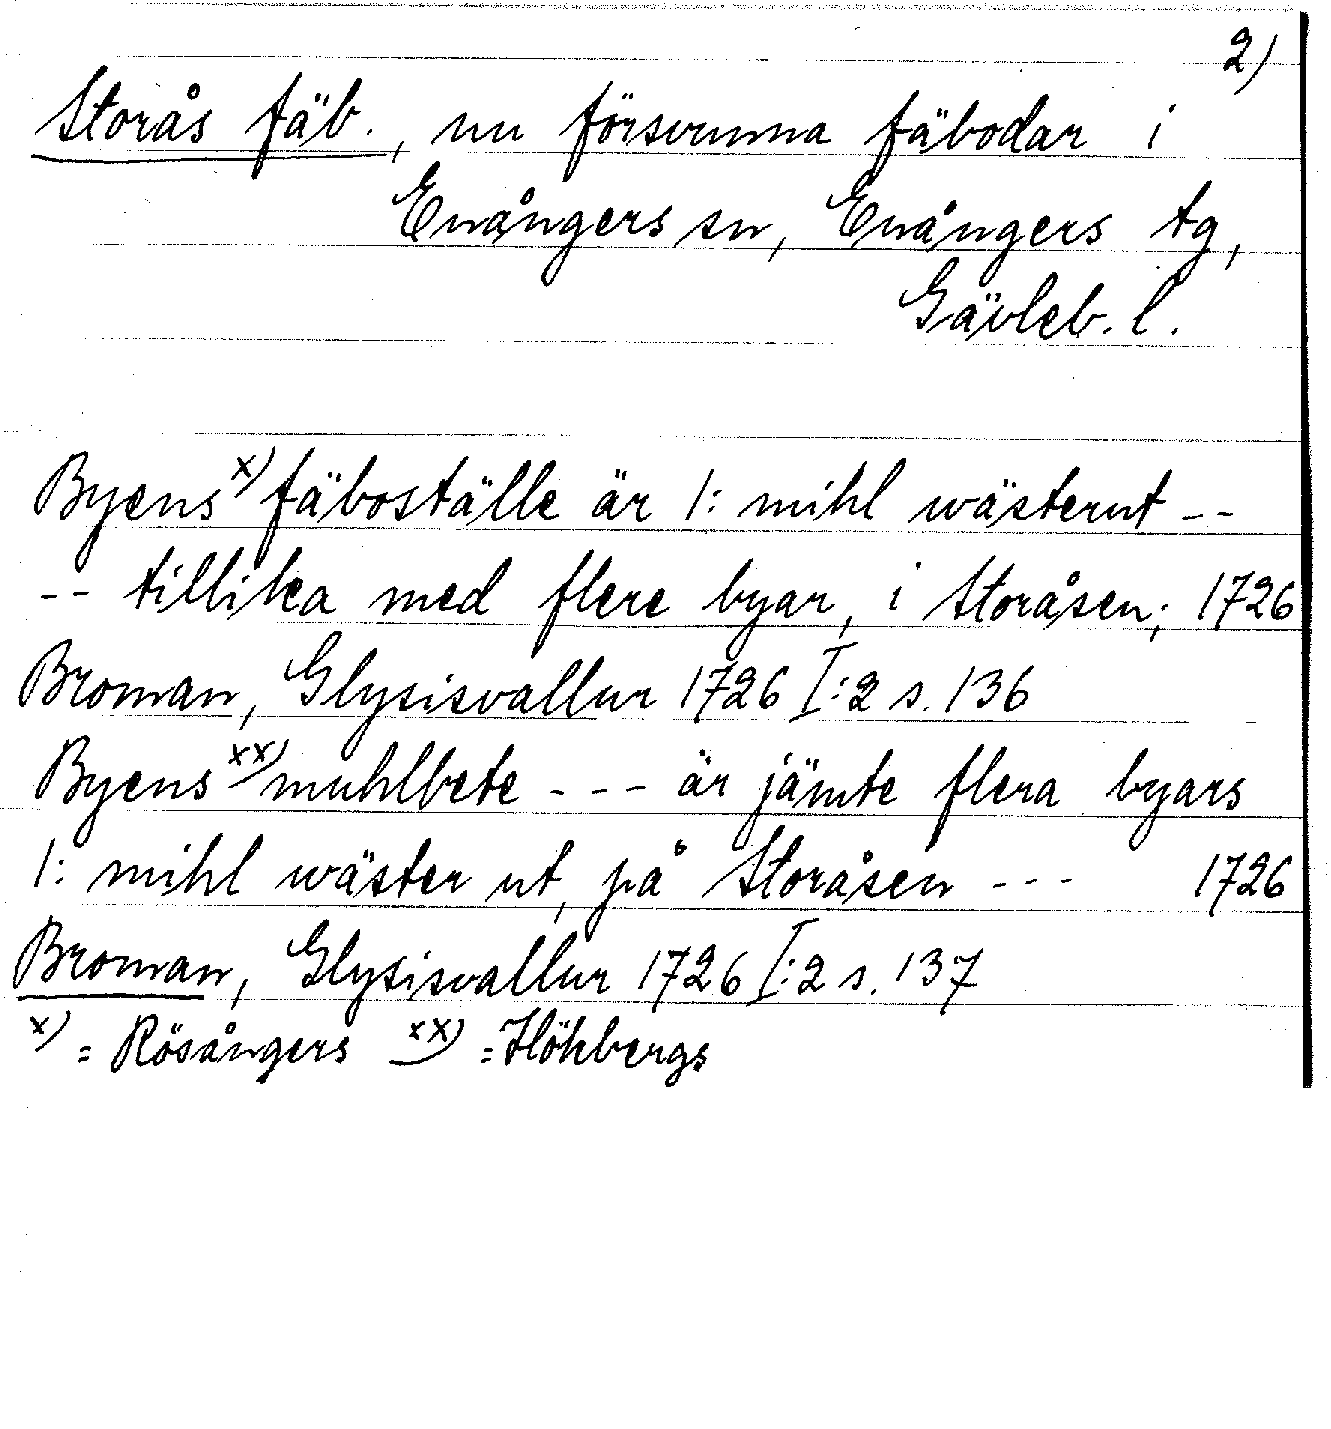 2)
Storås fäb., nu försvunna fäbodar i
Enångers sn, Enångers tg,
Gävleb. l.
Byens x) fäboställe är 1: mihl wästerut --
-- tillika med flere byar, i Storåsen; 1726
Broman, Glysisvallur 1726 I:2 s. 136
Byens xx) muhlbete --- är jämte flera byars
1: mihl wäster ut, på Storåsen --- 1726
Broman, Glysisvallur 1726 I:2 s. 137
x) = Rösångers xx) = Höhbergs